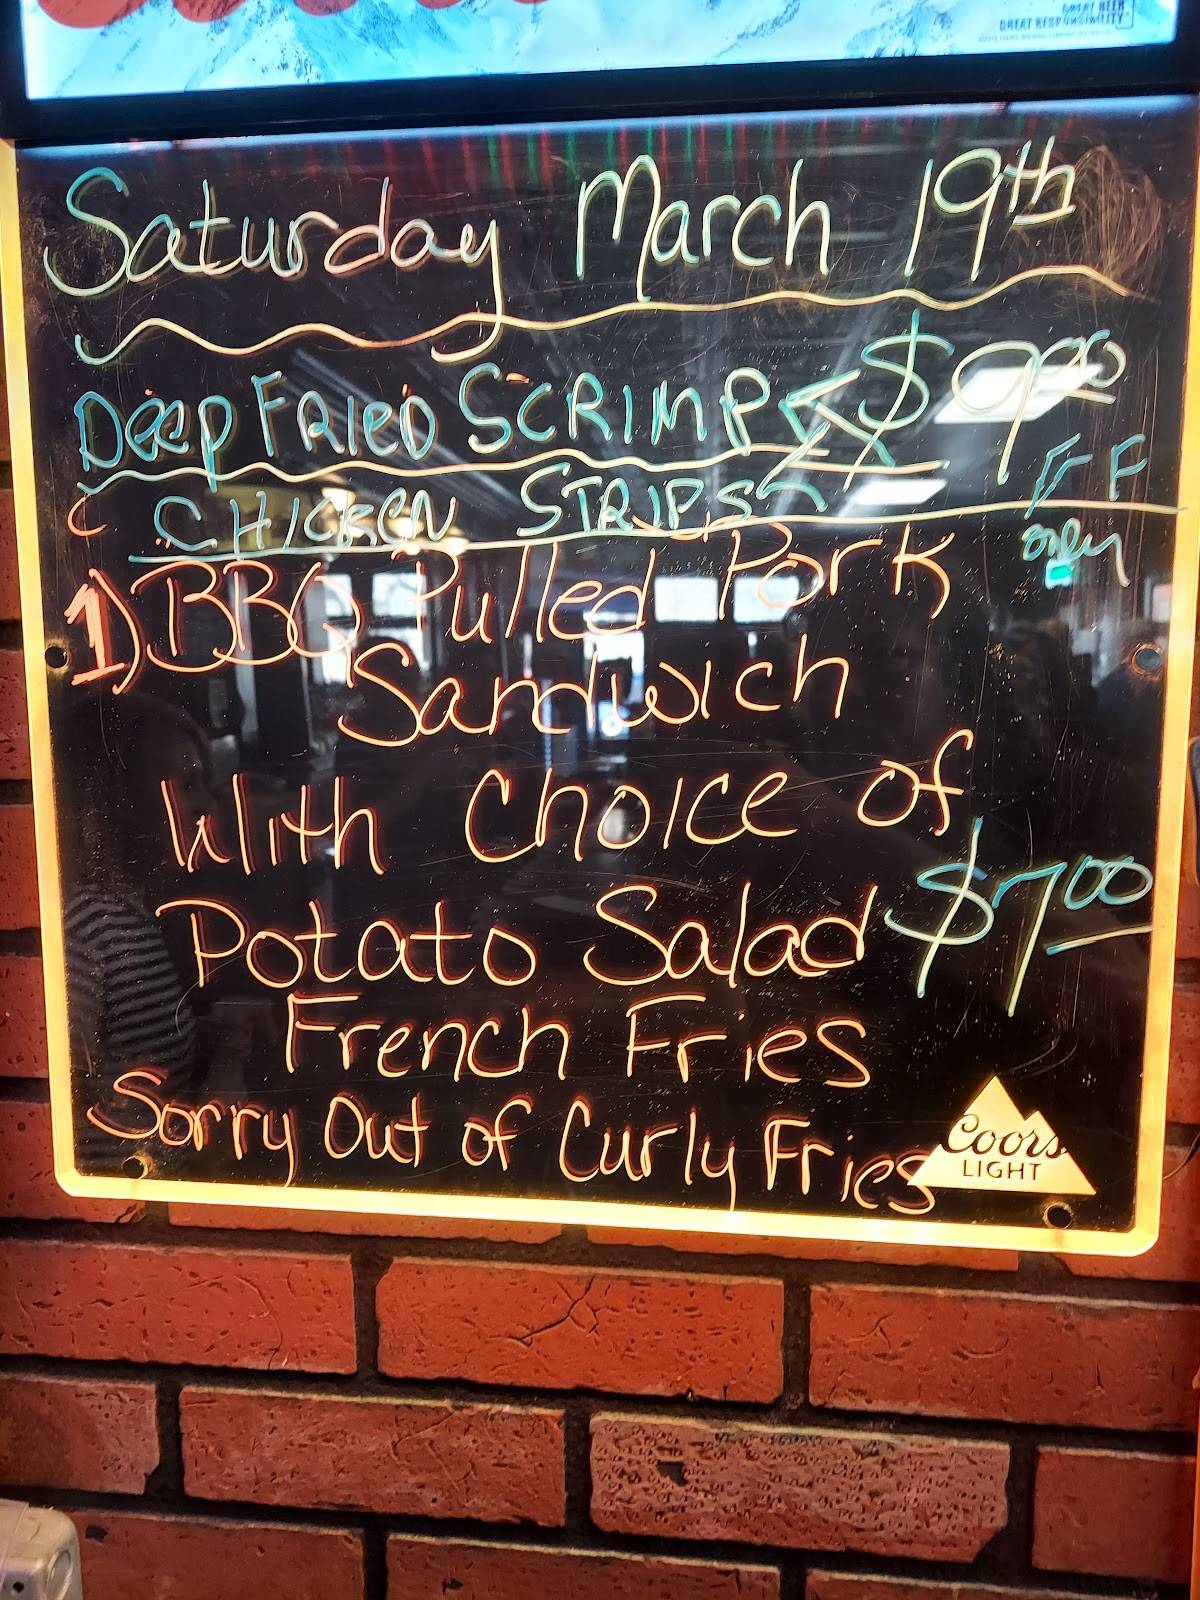 GREAT BEER
GREAT RESPONSIBILITY
Saturday March 19th
DEEP FRIED SCRIMP $9.00
CHICKEN STRIPS FF
only
1) BBQ Pulled Pork
Sandwich
With Choice of
Potato Salad $7.00
French Fries
Sorry Out of Curly Fries
Coors
LIGHT